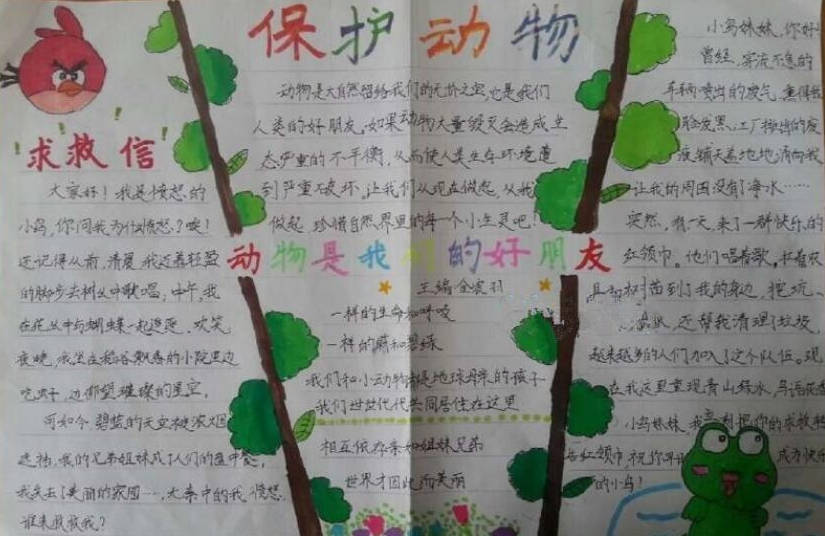 保护动物
动物是大自然留给我们的无价之宝,它是我们
人类的好朋友。如果动物大量毁灭会造成生
态严重的不平衡,从而使人类生存环境遭
到严重破坏。让我们从现在做起,从我
做起,珍惜自然界里的每一个小生灵吧!
求救信
大家好!我是愤怒的
小鸟,你问我为什么愤怒?唉!
还记得从前,清晨,我迈着轻盈
的脚步去树丛中歌唱;中午,我
在花丛中与蝴蝶一起逗逗,欢笑
夜晚,我坐在稻谷飘香的小院里边
吃虫子,边仰望璀璨的星空。
可如今碧蓝的天空被浓烟
遮挡,我的兄弟姐妹成了人们的盘中餐,
我失去了美丽的家园…,大森中的我愤怒,
谁来救救我?
动物是我们的好朋友
主编
一样的生命和呼吸
一样的蔚和碧绿
我们和小动物都是地球母亲的孩子
我们世世代代共同居住在这里
相互依存亲如姐妹兄弟
世界才因此而美丽
小鸟妹妹,你好!
曾经,穿流不息的
车辆喷出的废气,熏得我
脸发黑,工厂排出的废
铺天盖地地涌向我
让我的周围没有了净水……
突然,有一天,来了一群快乐的
红领巾。他们唱着歌,
树苗到了我的身边,挖坑、
还帮我清理了垃圾,
越来越多的人们加入了这个队伍。现
在我这里重现青山绿水,鸟语花香
小鸟妹妹,我把你的求救
红领巾,祝你早日成为快乐
的小鸟!